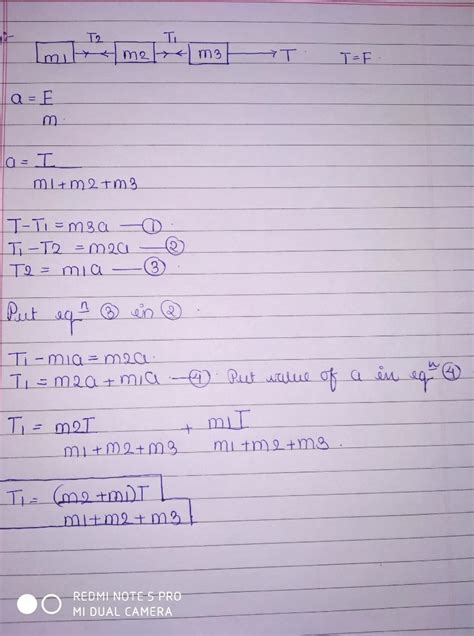 T2 T1
m1 m2 m3 T T=F.
a = F
m.
a = T
m1+m2+m3
T-T1 = m3a — ①.
T1-T2 = m2a — ②
T2 = m1a — ③.
Put eqn ③ in ②.
T1-m1a = m2a.
T1 = m2a+m1a — ④. Put value of a in eqn ④
T1 = m2T + m1T
m1+m2+m3 m1+m2+m3.
T1 = (m2+m1)T
m1+m2+m3
REDMI NOTE 5 PRO
MI DUAL CAMERA